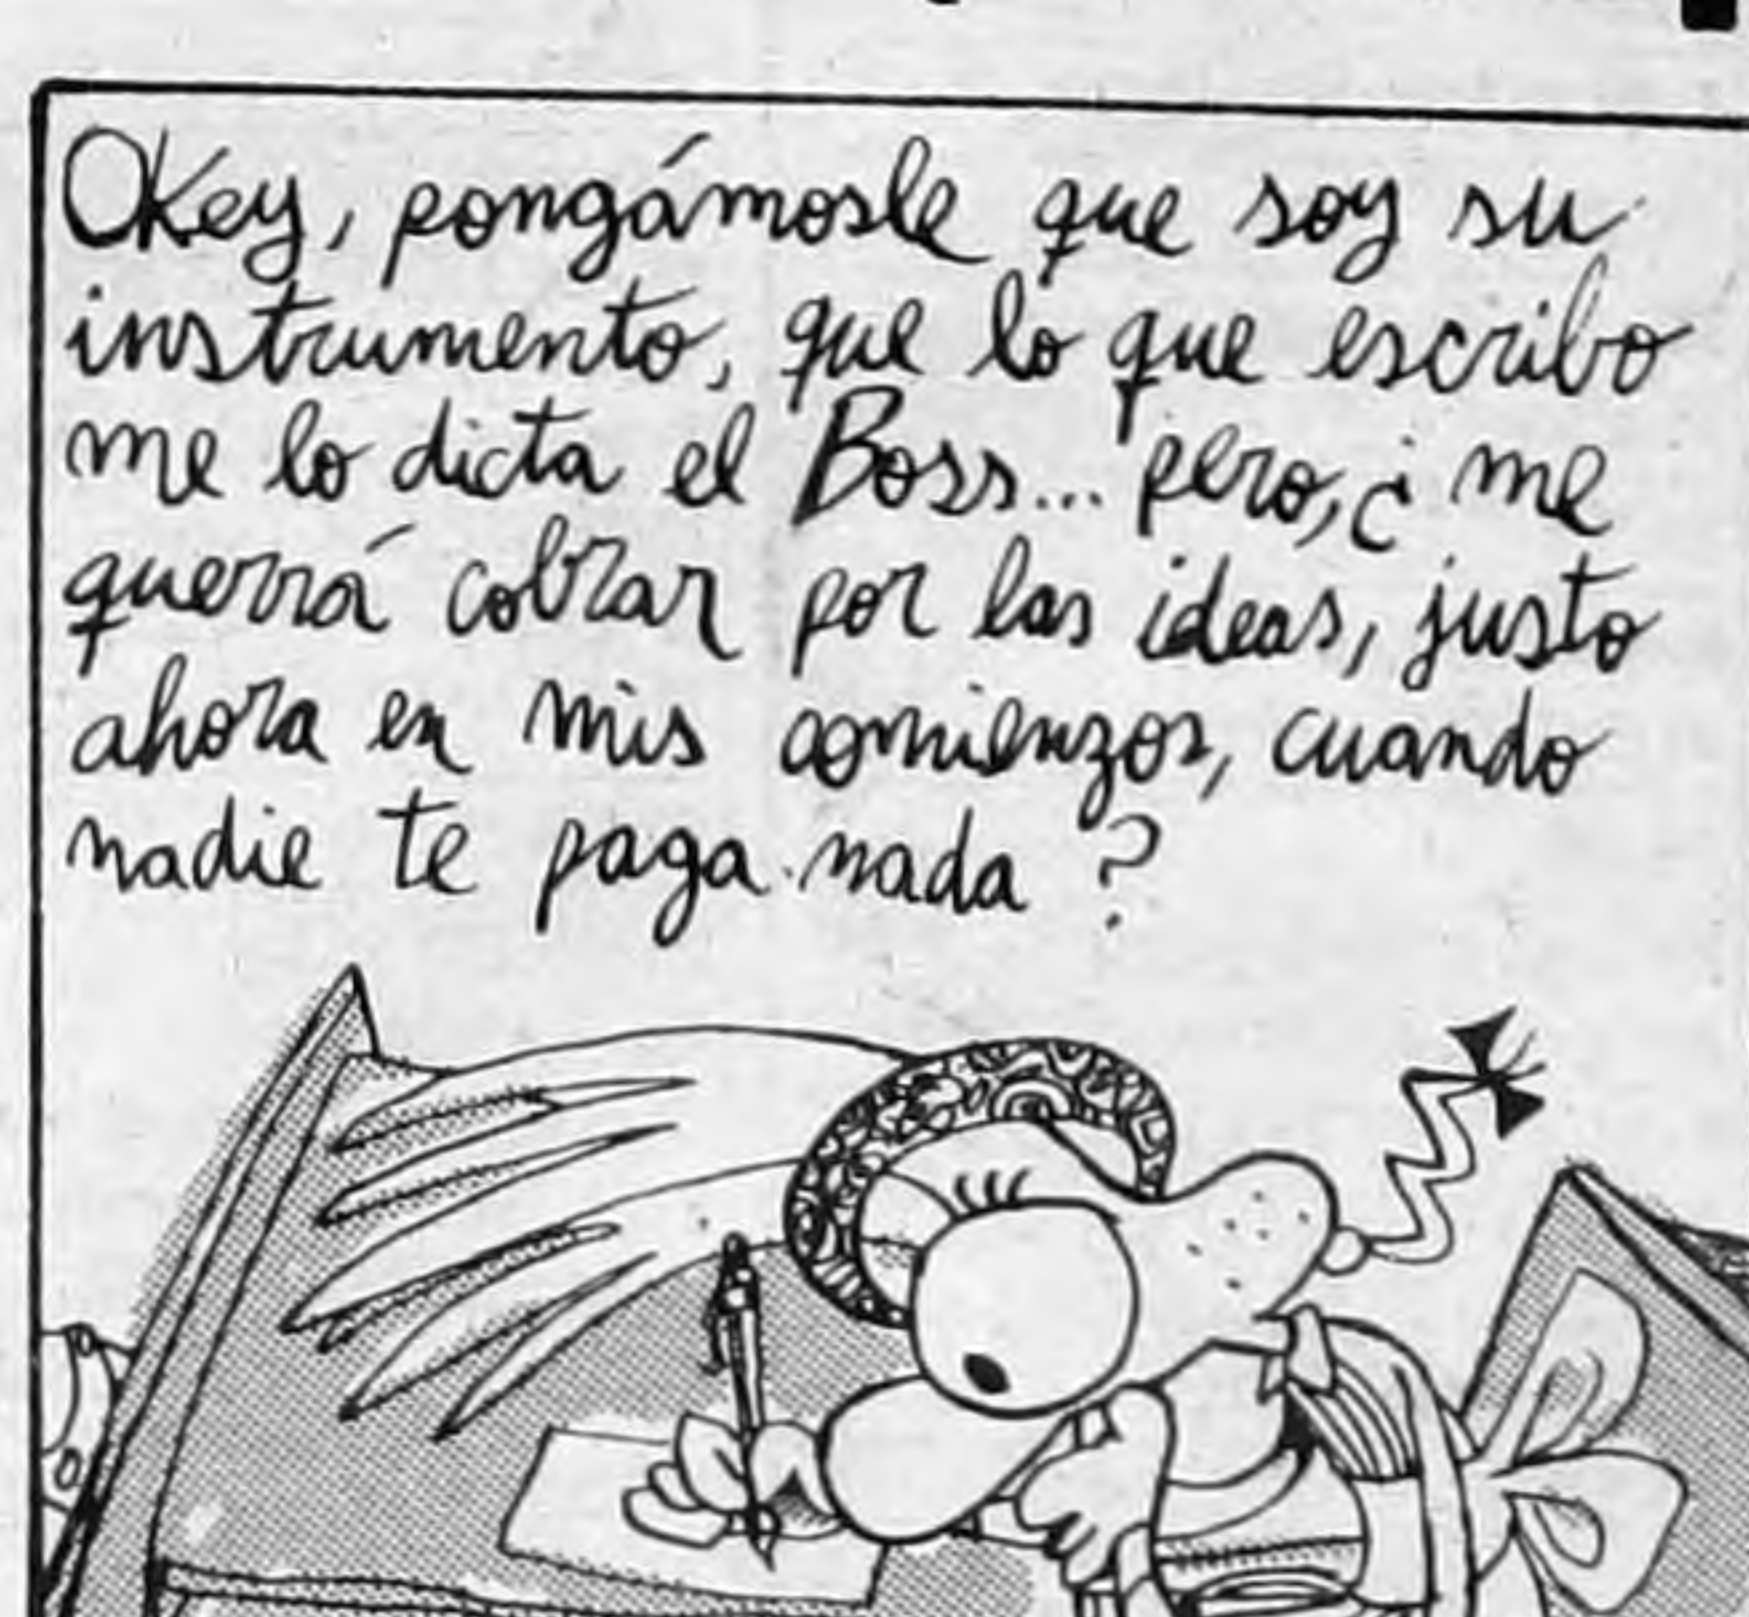 Okey, pongámosle que soy su
instrumento, que lo que escribo
me lo dicta el Boss... pero, ¿me
querrá cobrar por las ideas, justo
ahora en mis comienzos, cuando
nadie te paga nada?